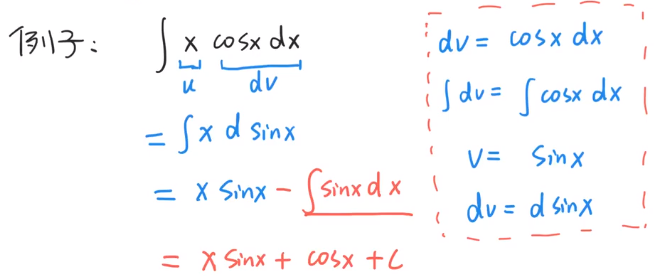 例子: ∫ x cosx dx
u dv
= ∫ x d sinx
= x sinx - ∫ sinx dx
= x sinx + cosx + C
dv = cosx dx
∫ dv = ∫ cosx dx
v = sinx
dv = d sinx